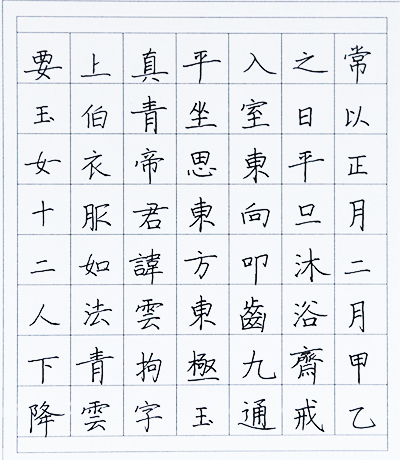 常以正月二月甲乙
之日平旦沐浴齋戒
入室東向叩齒九通
平坐思東方東極玉
真青帝君諱雲拘字
上伯衣服如法青雲
要玉女十二人下降